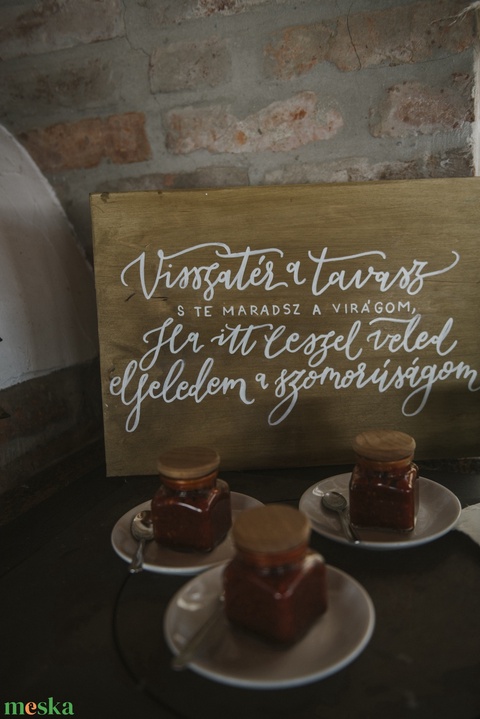 Visszatér a tavasz
S TE MARADSZ A VIRÁGOM,
Ha itt leszel veled
elfeledem a szomorúságom
meska